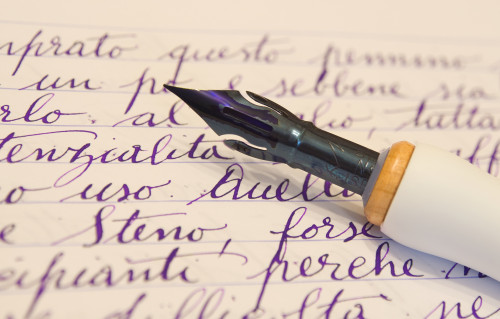 mprato questo pennino
un po' e sebbene sia
rlo al , tutta
tenzialità
o uso. Quello
e Steno, forse
cipianti perche
difficoltà ne